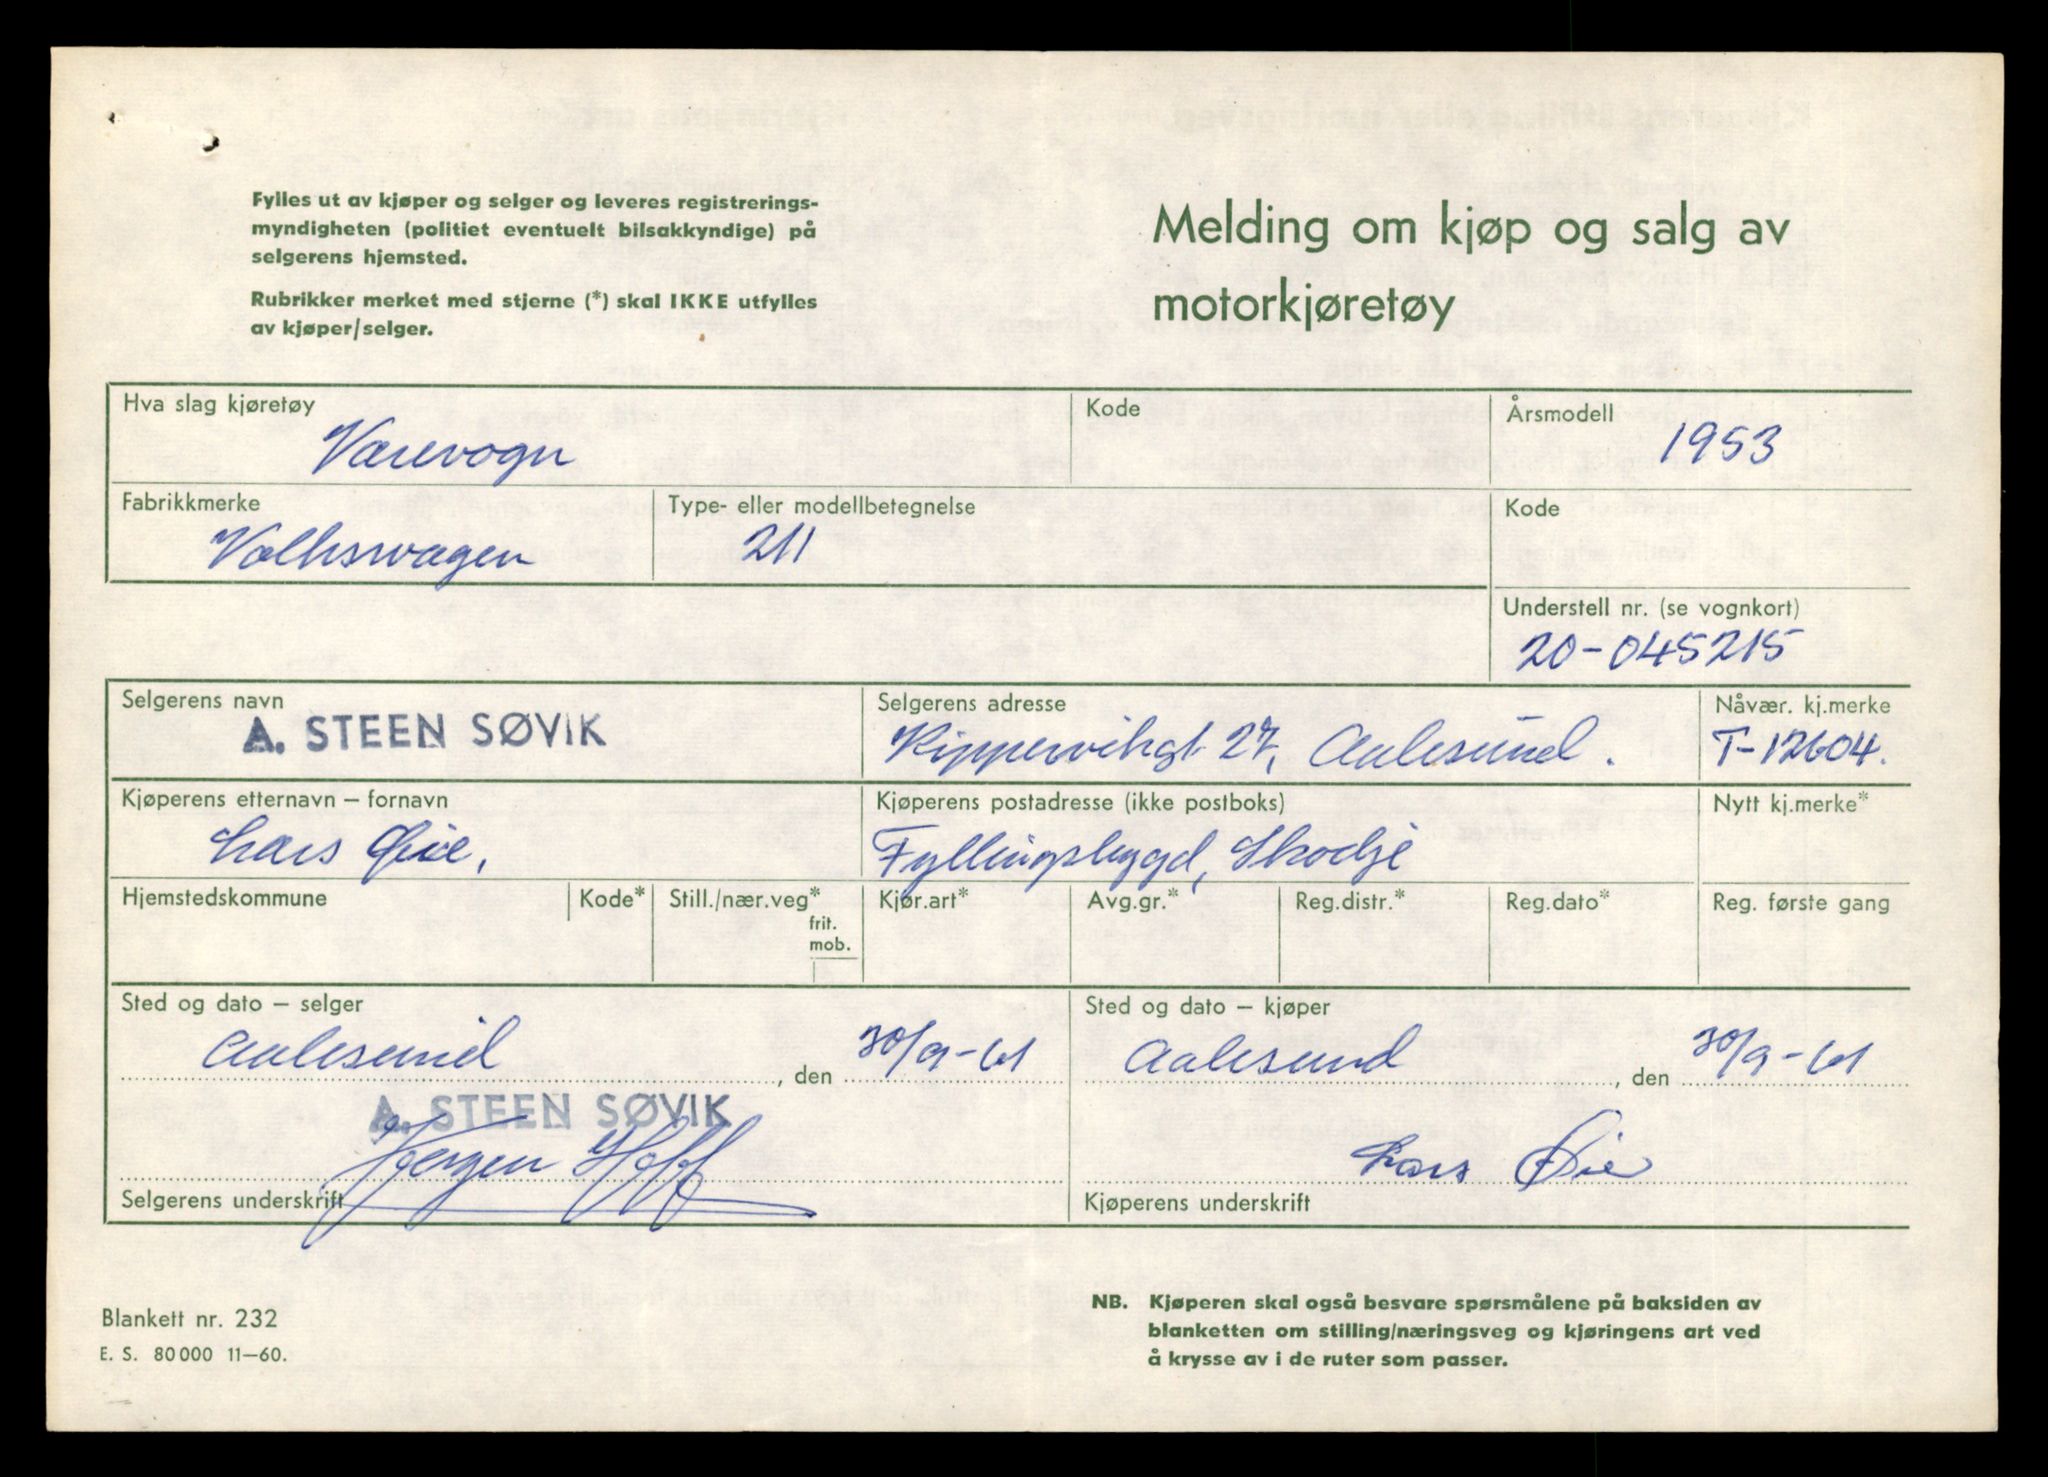 Fylles ut av kjøper og selger og leveres registrerings-
myndigheten (politiet eventuelt bilsakkyndige) på
selgerens hjemsted.
Rubrikker merket med stjerne (*) skal IKKE utfylles
av kjøper/selger.
Melding om kjøp og salg av
motorkjøretøy
Hva slag kjøretøy
Varevogn
Kode
Årsmodell
1953
Fabrikkmerke
Volkswagen
Type- eller modellbetegnelse
211
Kode
Understell nr. (se vognkort)
20-045215
Selgerens navn
A. STEEN SØVIK
Selgerens adresse
Kippervikgt. 27, Aalesund.
Nåvær. kj.merke
T-12604.
Kjøperens etternavn – fornavn
Lars Øie,
Kjøperens postadresse (ikke postboks)
Fyllingsbygd, Skodje
Nytt kj.merke*
Hjemstedskommune
Kode*
Still./nær.veg*
frit.
mob.
Kjør.art*
Avg.gr.*
Reg.distr.*
Reg.dato*
Reg. første gang
Sted og dato – selger
Aalesund, den 30/9-61
A. STEEN SØVIK
Jørgen Hoff
Selgerens underskrift
Sted og dato – kjøper
Aalesund, den 30/9-61
Lars Øie
Kjøperens underskrift
Blankett nr. 232
E. S. 80000 11–60.
NB. Kjøperen skal også besvare spørsmålene på baksiden av
blanketten om stilling/næringsveg og kjøringens art ved
å krysse av i de ruter som passer.